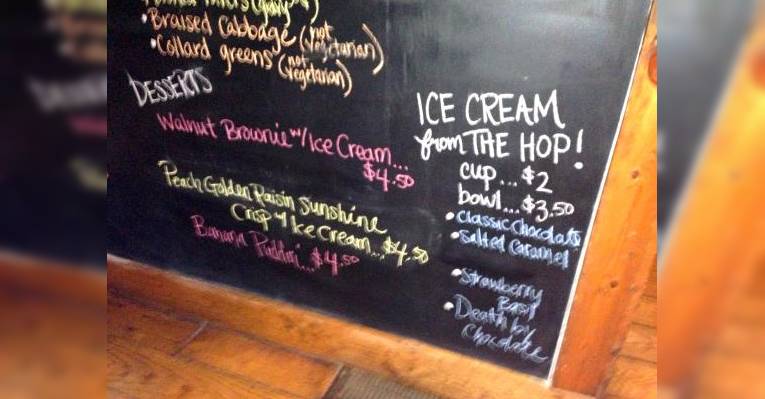 • Braised Cabbage (not vegetarian)
• Collard greens (not vegetarian)
DESSERTS
Walnut Brownie w/ Ice Cream...
$4.50
Peach Golden Raisin Sunshine
Crisp w/ Ice Cream... $4.50
Banana Puddin'... $4.50
ICE CREAM
from THE HOP!
cup... $2
bowl... $3.50
• Classic Chocolate
• Salted Caramel
• Strawberry
Basil
• Death by
Chocolate